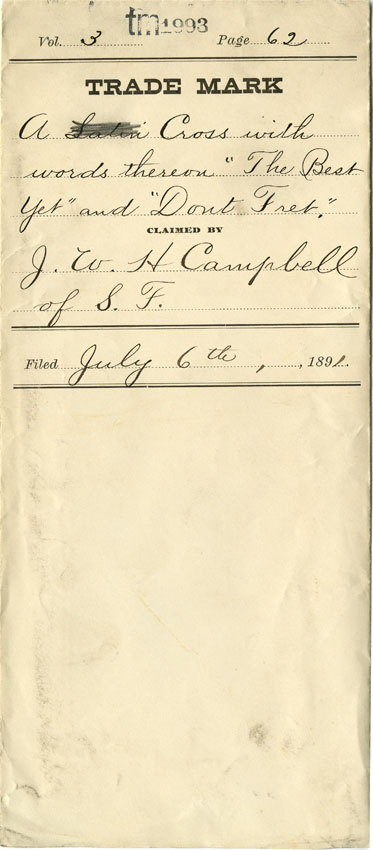 tm1993
Vol. 3 Page 62
TRADE MARK
A Latin Cross with
words thereon "The Best
Yet" and "Dont Fret."
CLAIMED BY
J. W. H Campbell
of S. F.
Filed July 6th, , 1891.